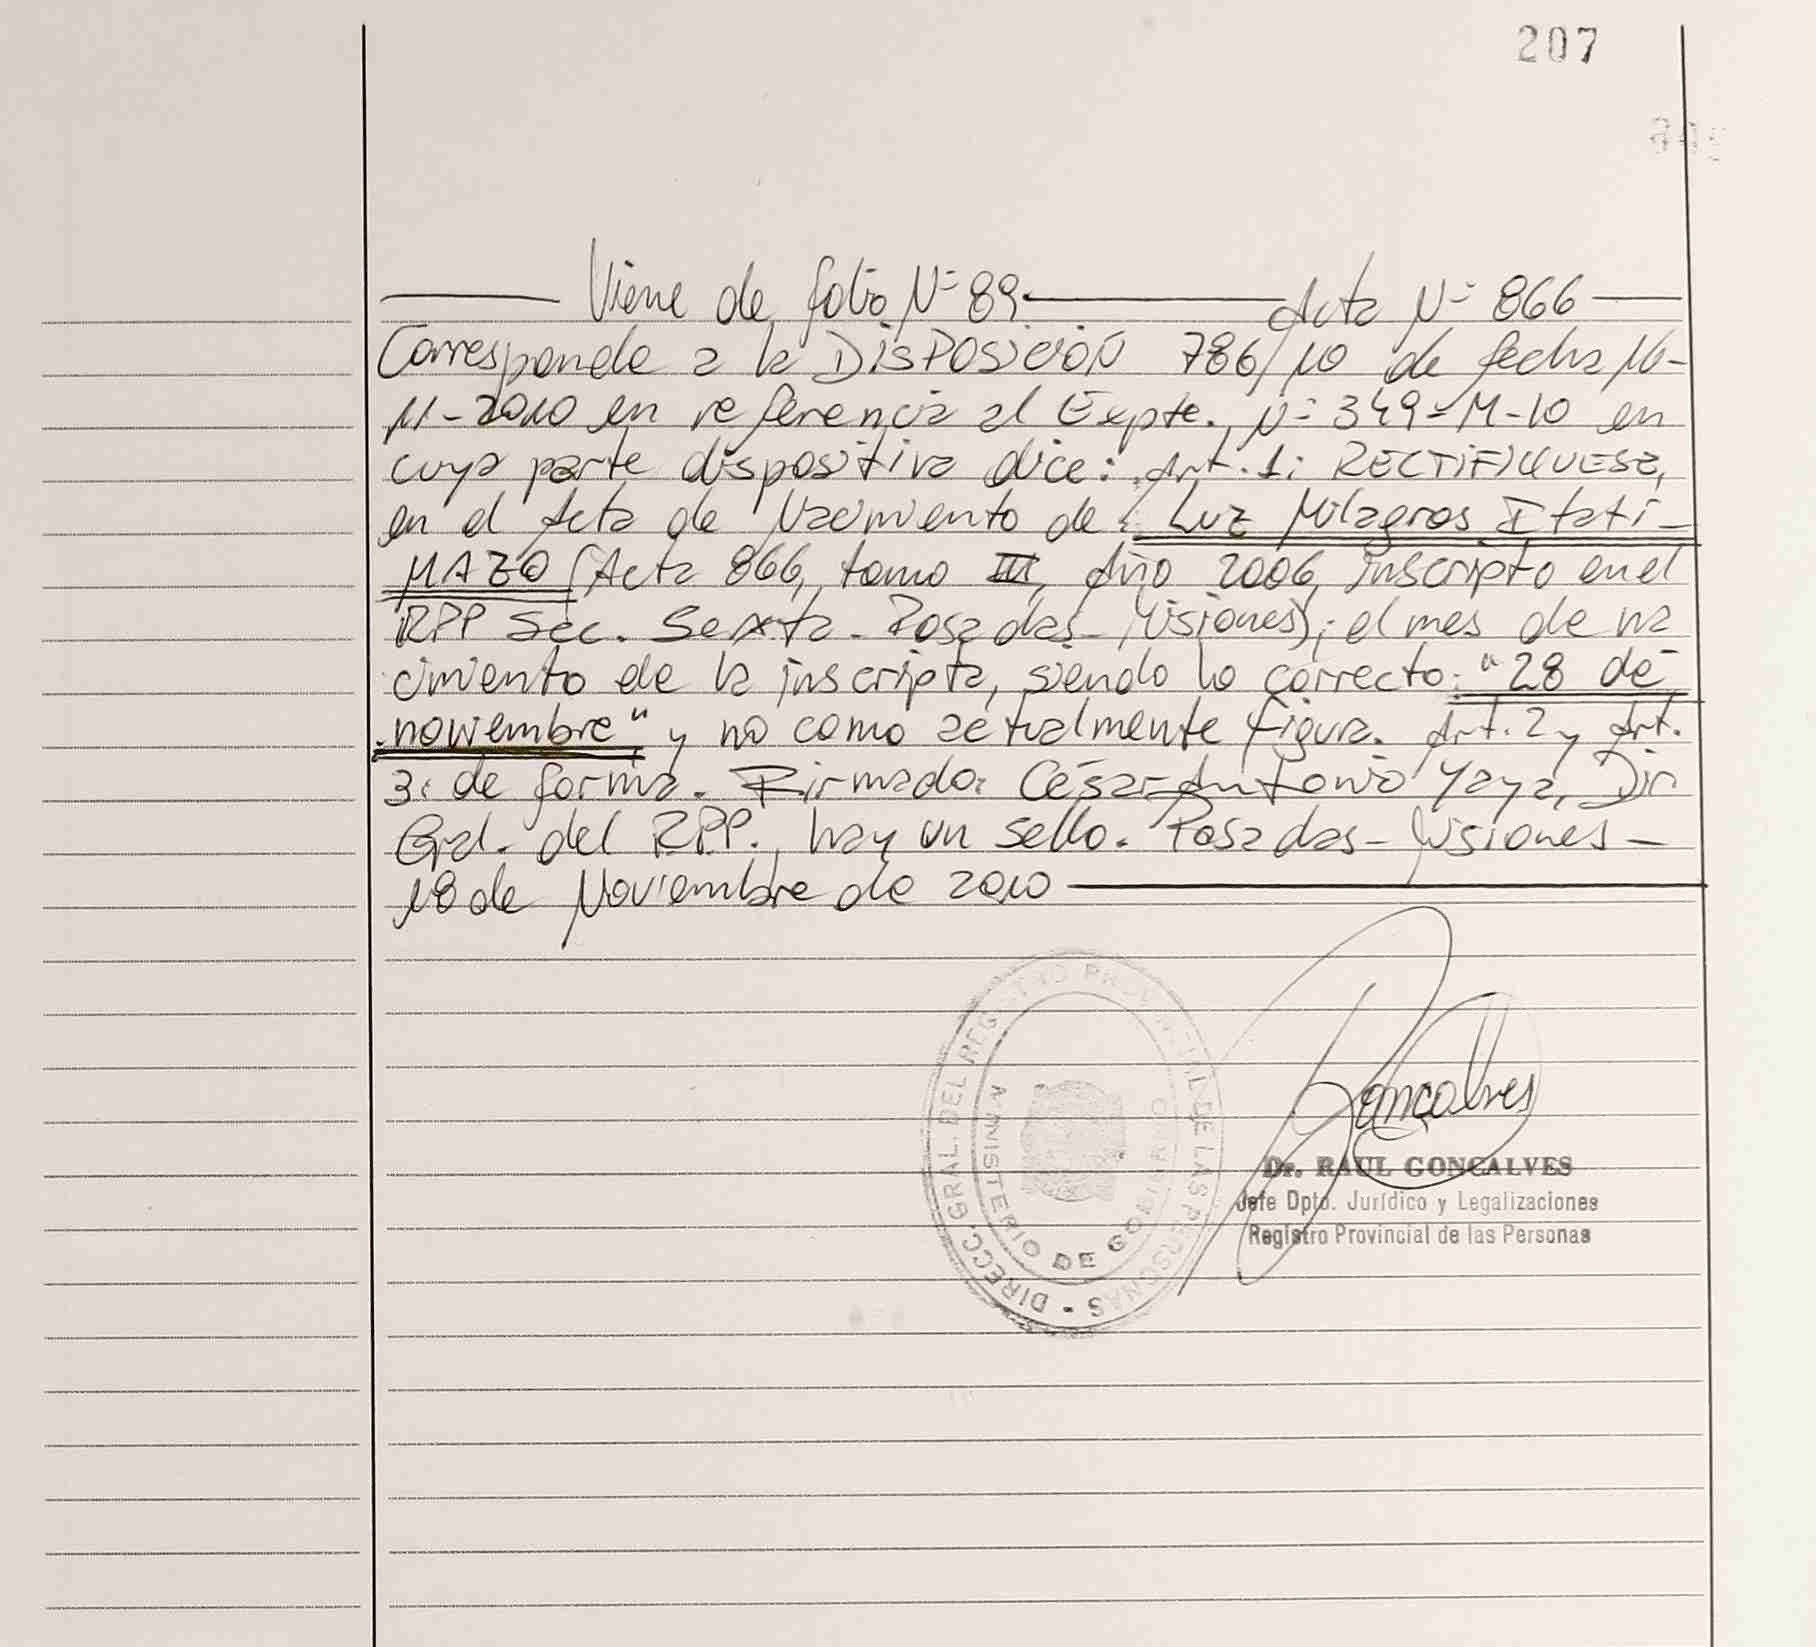 207
Viene de folio Nº 89. Acta Nº 866
Corresponde a la DISPOSICIÓN 786/10 de fecha 16-
11-2010 en referencia al Expte. Nº 349-M-10 en
cuya parte dispositiva dice: Art. 1: RECTIFIQUESE,
en el Acta de Nacimiento de Luz Milagros Itatí
MAZO (Acta 866, tomo III, Año 2006, inscripto en el
RPP Sec. Sexta - Posadas - Misiones); el mes de na
cimiento de la inscripta, siendo lo correcto: "28 de
noviembre" y no como actualmente figura. Art. 2 y Art.
3: de forma. Firmado: César Antonio Yaya, Dir.
Gral. del RPP., hay un sello. Posadas - Misiones -
18 de Noviembre de 2010
DIRECC. GRAL. DEL REGISTRO PROVINCIAL DE LAS PERSONAS -
MINISTERIO DE GOBIERNO
Goncalves
Dr. RAUL GONCALVES
Jefe Dpto. Jurídico y Legalizaciones
Registro Provincial de las Personas